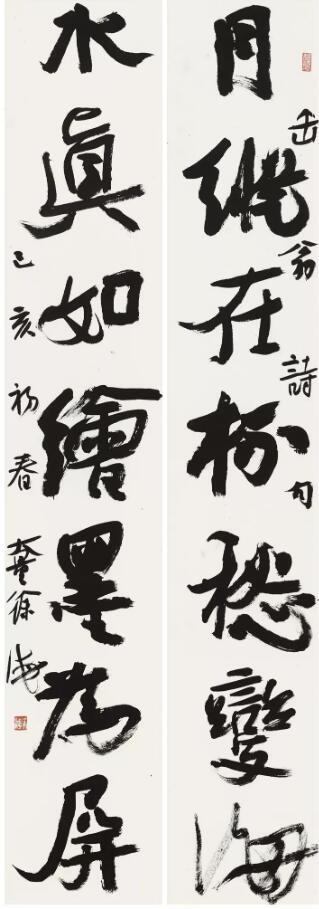 月在愁變海
缶翁詩句
水眞如繪墨為屏
己亥初春徐海